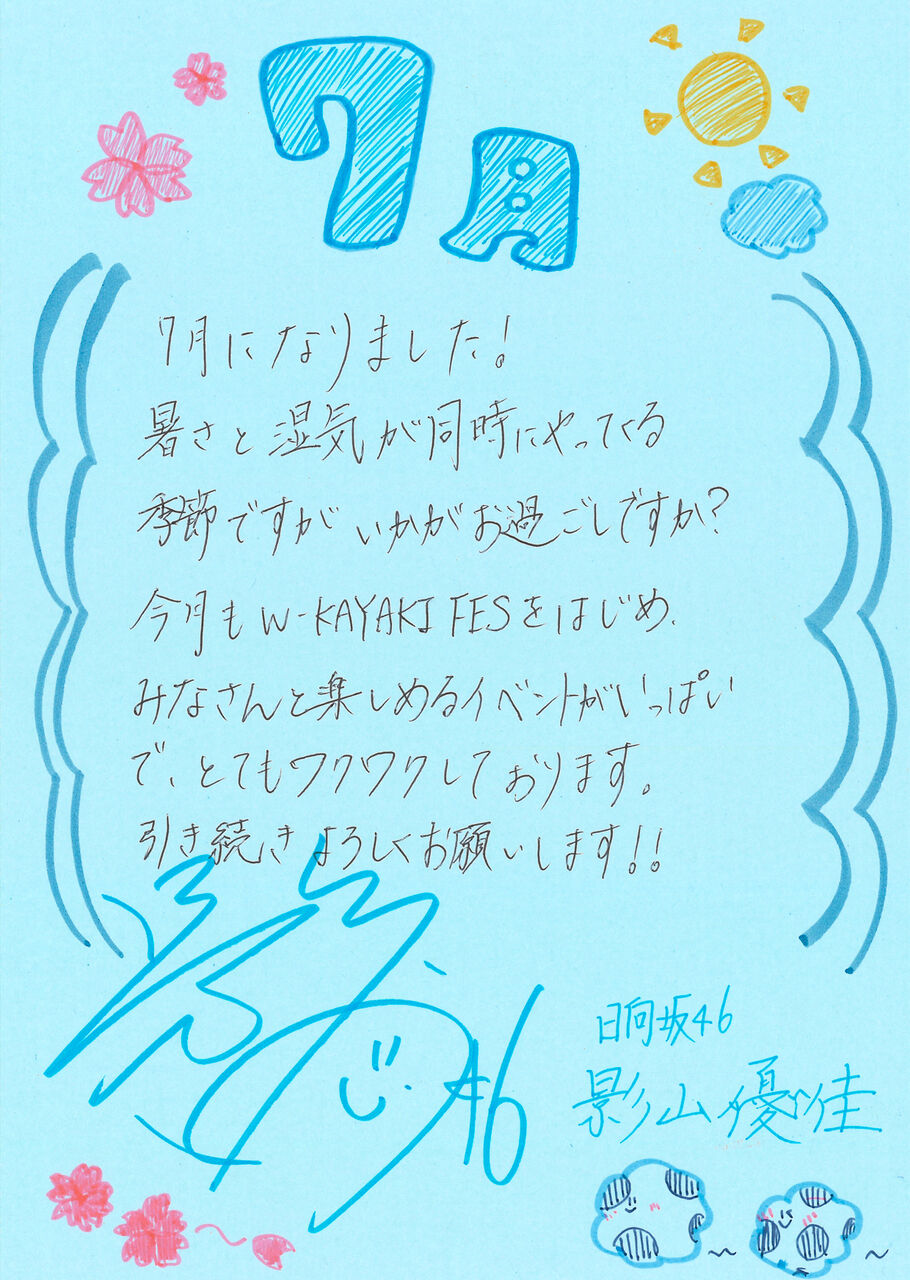 7月
7月になりました!
暑さと湿気が同時にやってくる
季節ですが いかがお過ごしですか?
今月も W-KAYAKI FESをはじめ、
みなさんと楽しめるイベントがいっぱい
で、とてもワクワクしております。
引き続きよろしくお願いします!!
日向坂46
影山優佳